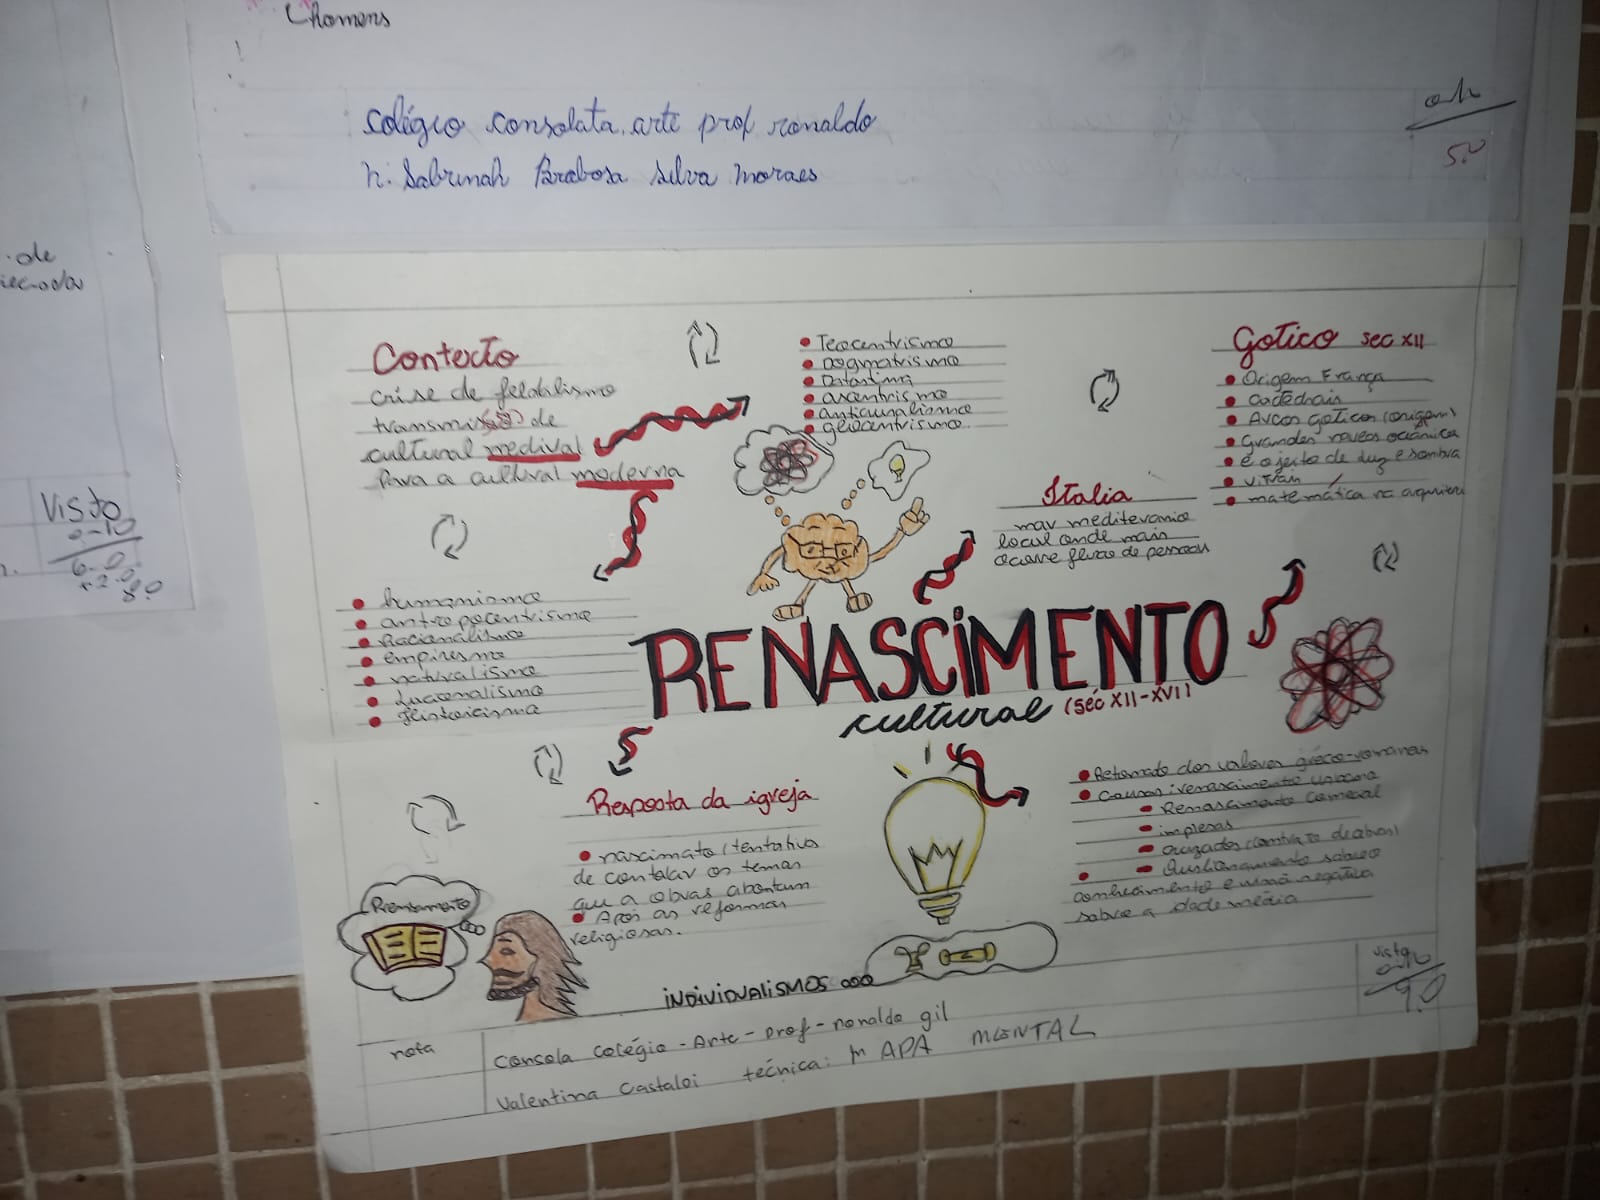 homens
colégio consolata. arte prof ronaldo
n. Sabrinah Brabosa Silva Moraes
5.0
de
Visto
2-10
6.0
+2.0
8.0
Contexto
crise de feldalismo
de
cultural medival
para a cultural moderna
Teocentrismo
Dogmatrismo
geocentrismo
Gotico sec XII
Origem França
catedrais
Arcos goticos (origem)
grandes
e o jeito de luz e sombra
matemática na
Italia
mar mediterranio
local onde mais
ocorre fluxo de pessoas
humanismo
antropocentrismo
Racionalismo
empirismo
naturalismo
RENASCIMENTO
cultural (séc XII-XVI)
Resposta da igreja
nascimato (tentativa
de contolar os temas
que a obras abortam
Após as reformas
religiosas.
Retomada dos valores greco-romanas
causas: renascimento urbano
Renascimento comecal
implesas
sobre o
conhecimento e visão negativa
sobre a idade média
Pensamento
INDIVIDUALISMOS
visto
9.0
nota
Consola colégio - Arte - prof - ronaldo gil
Valentina Castaloi técnica: MAPA MENTAL